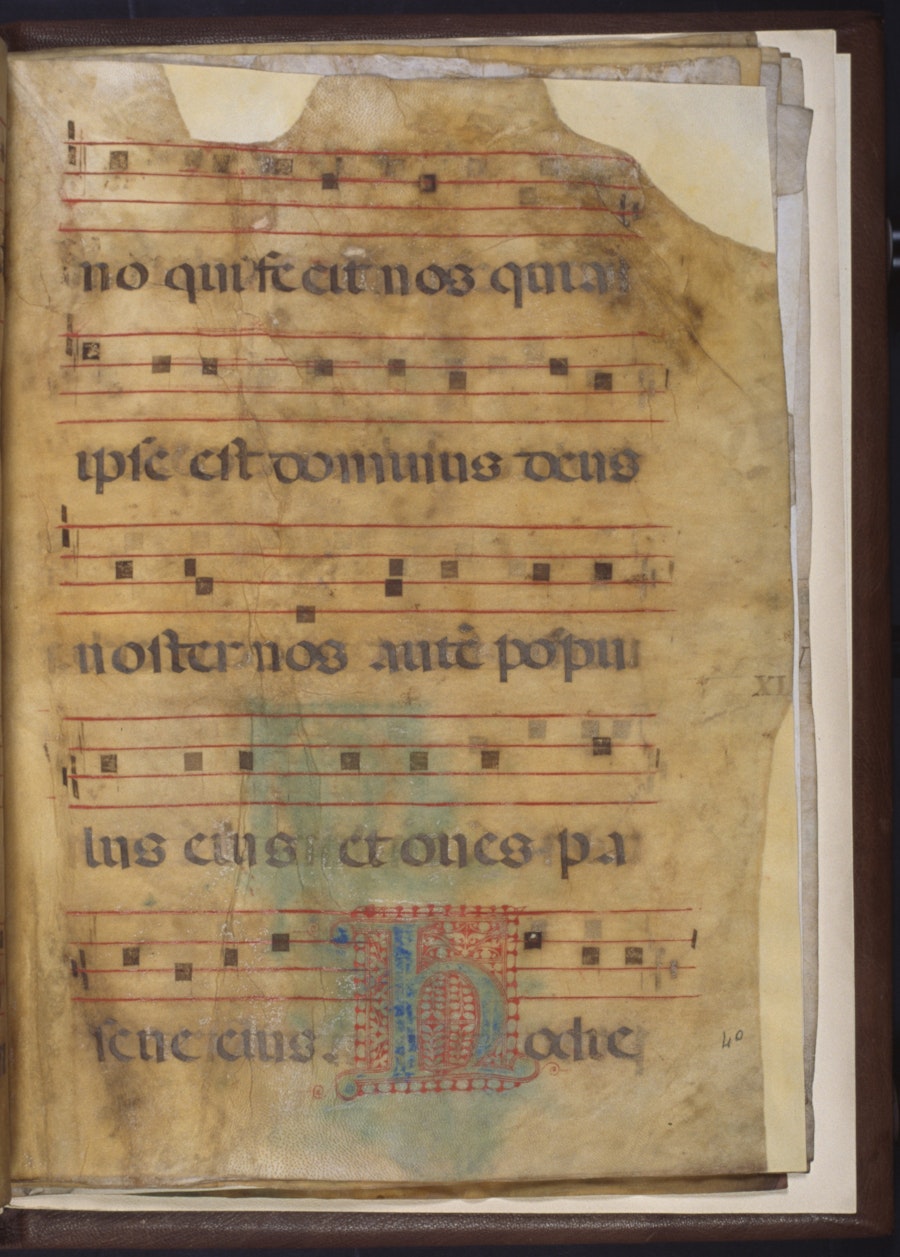 no qui fecit nos quia
ipse est dominus deus
noster nos autē popu
lus eius et oues pa
XL
scue eius. hodie
40